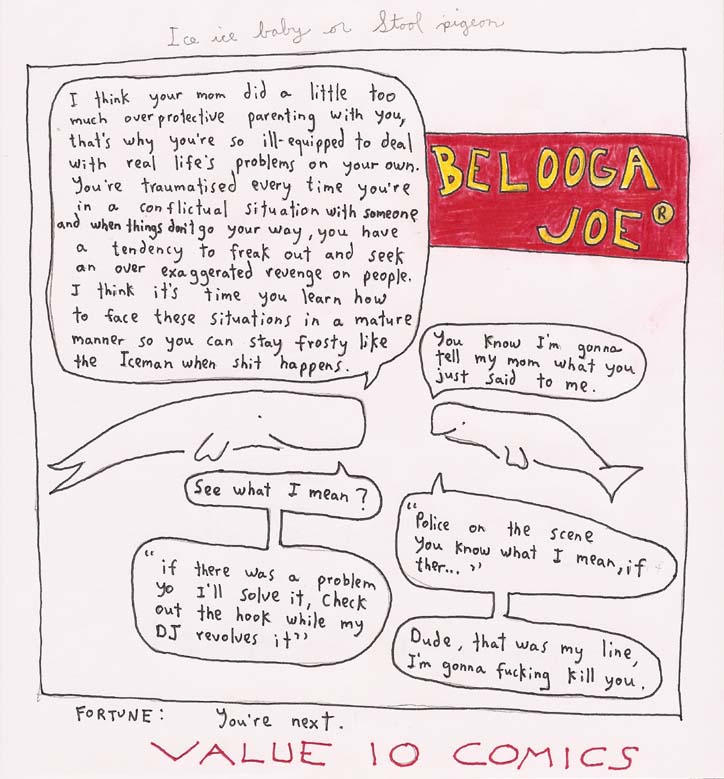 Ice ice baby or Stool pigeon
I think your mom did a little too
much overprotective parenting with you,
that's why you're so ill-equipped to deal
with real life's problems on your own.
You're traumatised every time you're
in a conflictual situation with someone
and when things don't go your way, you have
a tendency to freak out and seek
an over exaggerated revenge on people.
I think it's time you learn how
to face these situations in a mature
manner so you can stay frosty like
the Iceman when shit happens.
BELOOGA
JOE ®
You know I'm gonna
tell my mom what you
just said to me.
See what I mean?
"if there was a problem
yo I'll solve it, Check
out the hook while my
DJ revolves it"
"Police on the scene
You know what I mean, if
ther... "
Dude, that was my line,
I'm gonna fucking kill you.
FORTUNE: You're next.
VALUE 10 COMICS